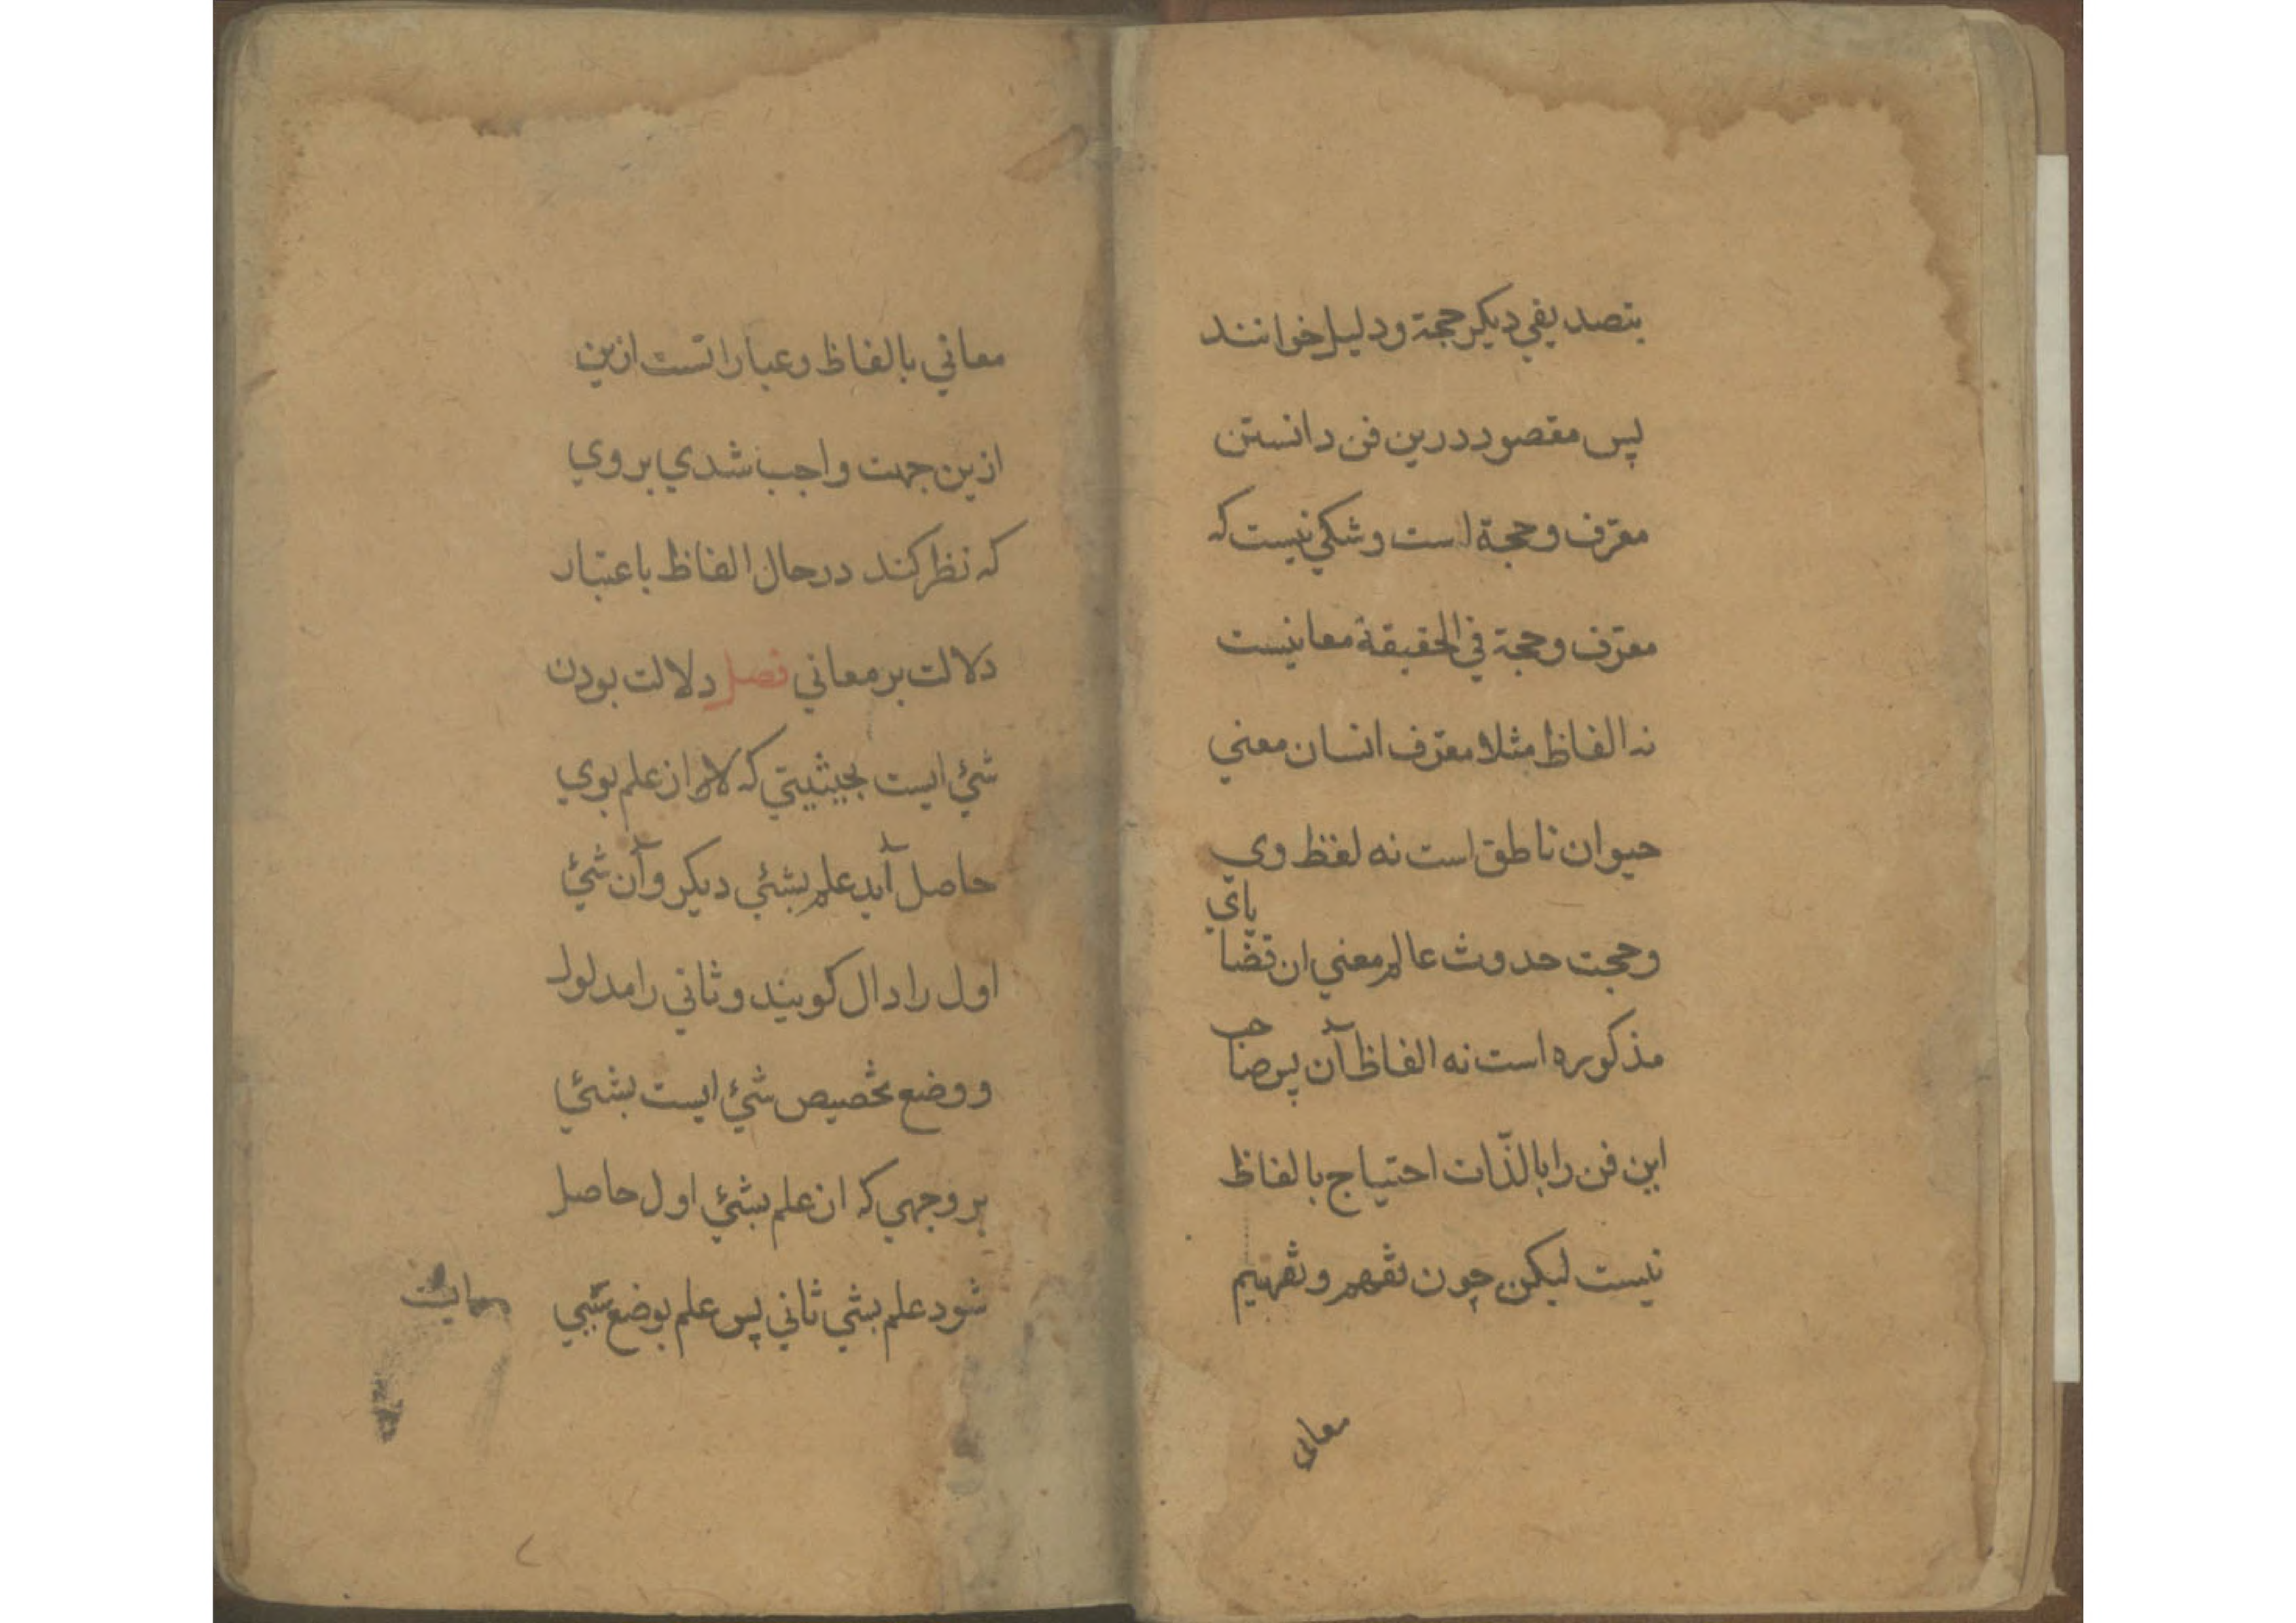 بتصدیقي دیکر حجة ودلیل خوانند
پس مقصود درین فن دانستن
معرّف وحجة است وشکي نیست که
معرّف وحجة في الحقیقة معانیست
نه الفاظ مثلا معرّف انسان معني
حیوان ناطق است نه لفظ وي
وحجت حدوث عالم معني ان قضا
یاي
مذکوره است نه الفاظ آن پس صا
حب
این فن را بالذّات احتیاج بالفاظ
نیست لیکن چون تفهم وتفهیم
معانی
معاني بالفاظ وعباراتست ازین
ازین جهت واجب شدي بروي
که نظر کند در حال الفاظ باعتبار
دلالت بر معاني فصل دلالت بودن
شئ ایست بحیثیتي که از علم بوي
حاصل آید علم بشئي دیکر وآن شئ
اول را دال کویند وثاني را مدلول
ووضع تخصیص شئ ایست بشئي
بر وجهي که از علم بشئي اول حاصل
شود علم بشي ثاني پس علم بوضع